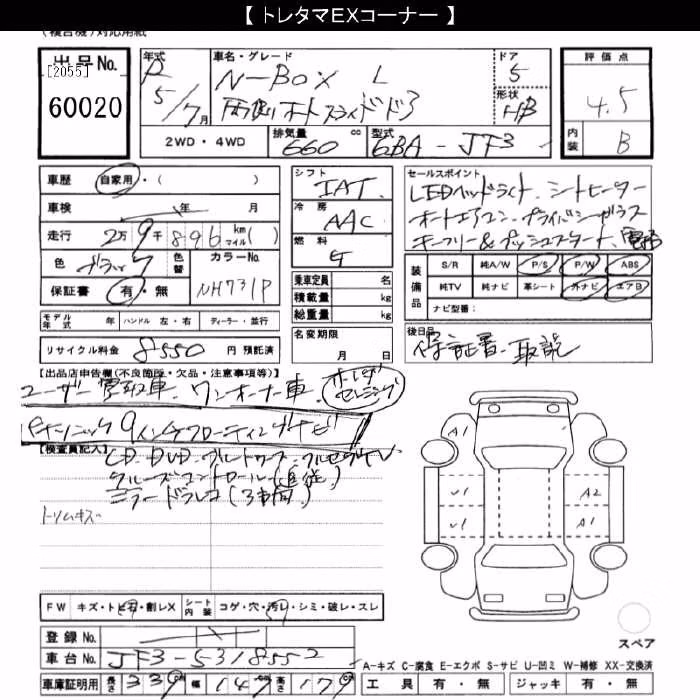 【 トレタマEXコーナー 】
(複合機)対応用紙
出品No.
[2055]
60020
年式 R 5/7月
車名・グレード
N-BOX L
両側オートスライドドア
ドア 5
形状 HB
評価点
4.5
内装 B
2WD・4WD
排気量 660 cc
型式 6BA-JF3
車歴 自家用・( )
車検 年 月
走行 2万9千896 km マイル( )
色 ブラック
色替
カラーNo. NH731P
保証書 有・無
モデル年式 年 ハンドル 左・右 ディーラー・並行
リサイクル料金 8550 円 預託済
シフト IAT
冷房 AAC
燃料 G
乗車定員 名
積載量 kg
総重量 kg
名変期限
月 日
セールスポイント
LEDヘッドライト、シートヒーター
オートエアコン、プライバシーガラス
キーフリー&プッシュスタート、
装備品
S/R 純A/W P/S P/W ABS
純TV 純ナビ 革シート 外ナビ エアB
ナビ型番:
後日品
保証書、取説
【出品店申告欄(不良箇所・欠品・注意事項等)】
ユーザー買取車、ワンオーナー車、
パナソニック9インチフローティングナビ
【検査員記入】
CD、DVD、ブルートゥース、フルセグTV
クルーズコントロール(追従)
ミラードラレコ(3車両)
トリムキズ
A1
U1 A2
U1 A1
FW キズ・トビ石・割レX
シート内装 コゲ・穴・汚レ・シミ・破レ・スレ
登録No.
車台No. JF3-5318552
車庫証明用 長さ 339 幅 147 高さ 179
スペア
A-キズ C-腐食 E-エクボ S-サビ U-凹ミ W-補修 XX-交換済
工具 有・無 ジャッキ 有・無